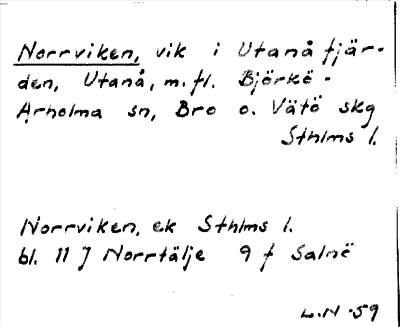 Norrviken, vik i Utanå fjär-
den, Utanå, m. fl. Björkö-
Arholma sn, Bro o. Vätö skg
Sthlms l.
Norrviken, ek Sthlms l.
bl. 11 J Norrtälje 9 f Salnö
L.N -59